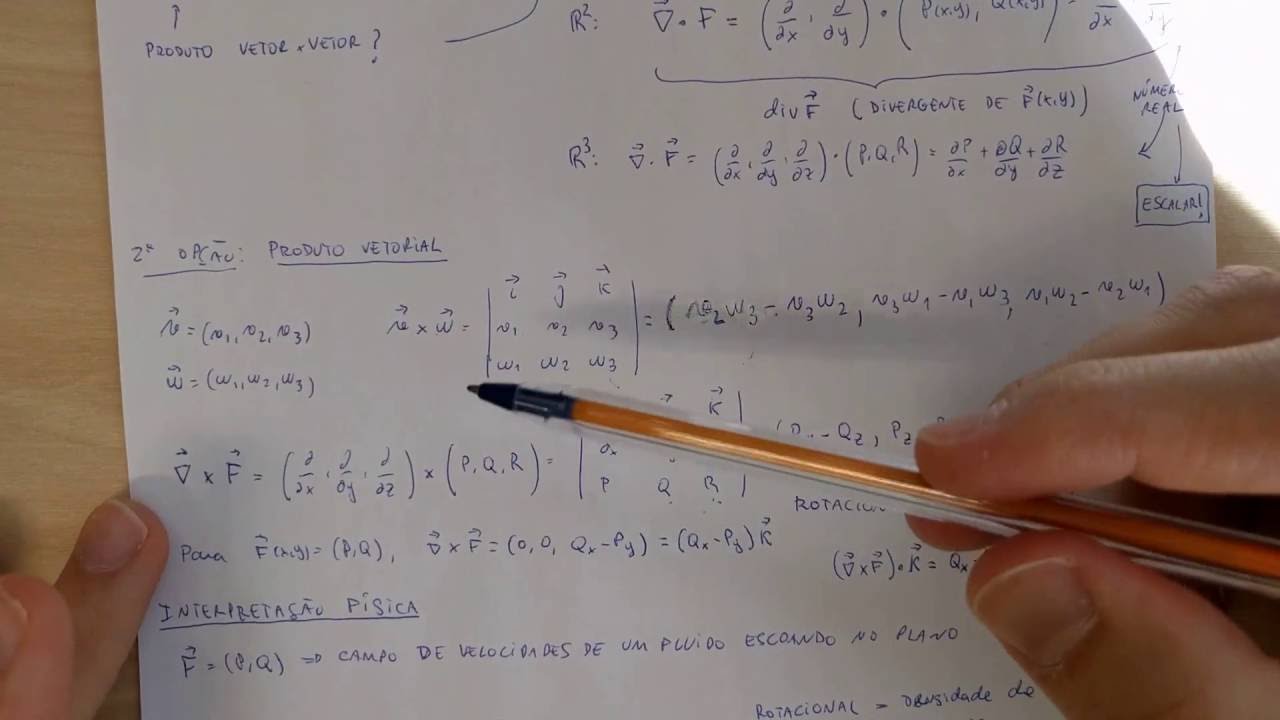 PRODUTO VETOR × VETOR?
R²: ∇⃗ • F⃗ = (∂/∂x, ∂/∂y) • (P(x,y), Q(x,y)) =
div F⃗ (DIVERGENTE DE F⃗(x,y))
NÚMER
REAL
R³: ∇⃗ . F⃗ = (∂/∂x, ∂/∂y, ∂/∂z) • (P, Q, R) = ∂P/∂x + ∂Q/∂y + ∂R/∂z
ESCALAR!
2ª OPÇÃO: PRODUTO VETORIAL
i⃗ j⃗ k⃗
v⃗ = (v₁, v₂, v₃) v⃗ × w⃗ = | v₁ v₂ v₃ | = (v₂w₃ - v₃w₂, v₃w₁ - v₁w₃, v₁w₂ - v₂w₁)
w₁ w₂ w₃
w⃗ = (w₁, w₂, w₃)
k⃗
- Qz, Pz
∇⃗ × F⃗ = (∂/∂x, ∂/∂y, ∂/∂z) × (P, Q, R) = | ∂x
P Q R
ROTACION
Para F⃗(x,y) = (P,Q), ∇⃗ × F⃗ = (0, 0, Qx - Py) = (Qx - Py) k⃗
(∇⃗ × F⃗) • k⃗ = Qx
INTERPRETAÇÃO FÍSICA
F⃗ = (P,Q) ⇒ CAMPO DE VELOCIDADES DE UM FLUIDO ESCOANDO NO PLANO
ROTACIONAL = DENSIDADE de